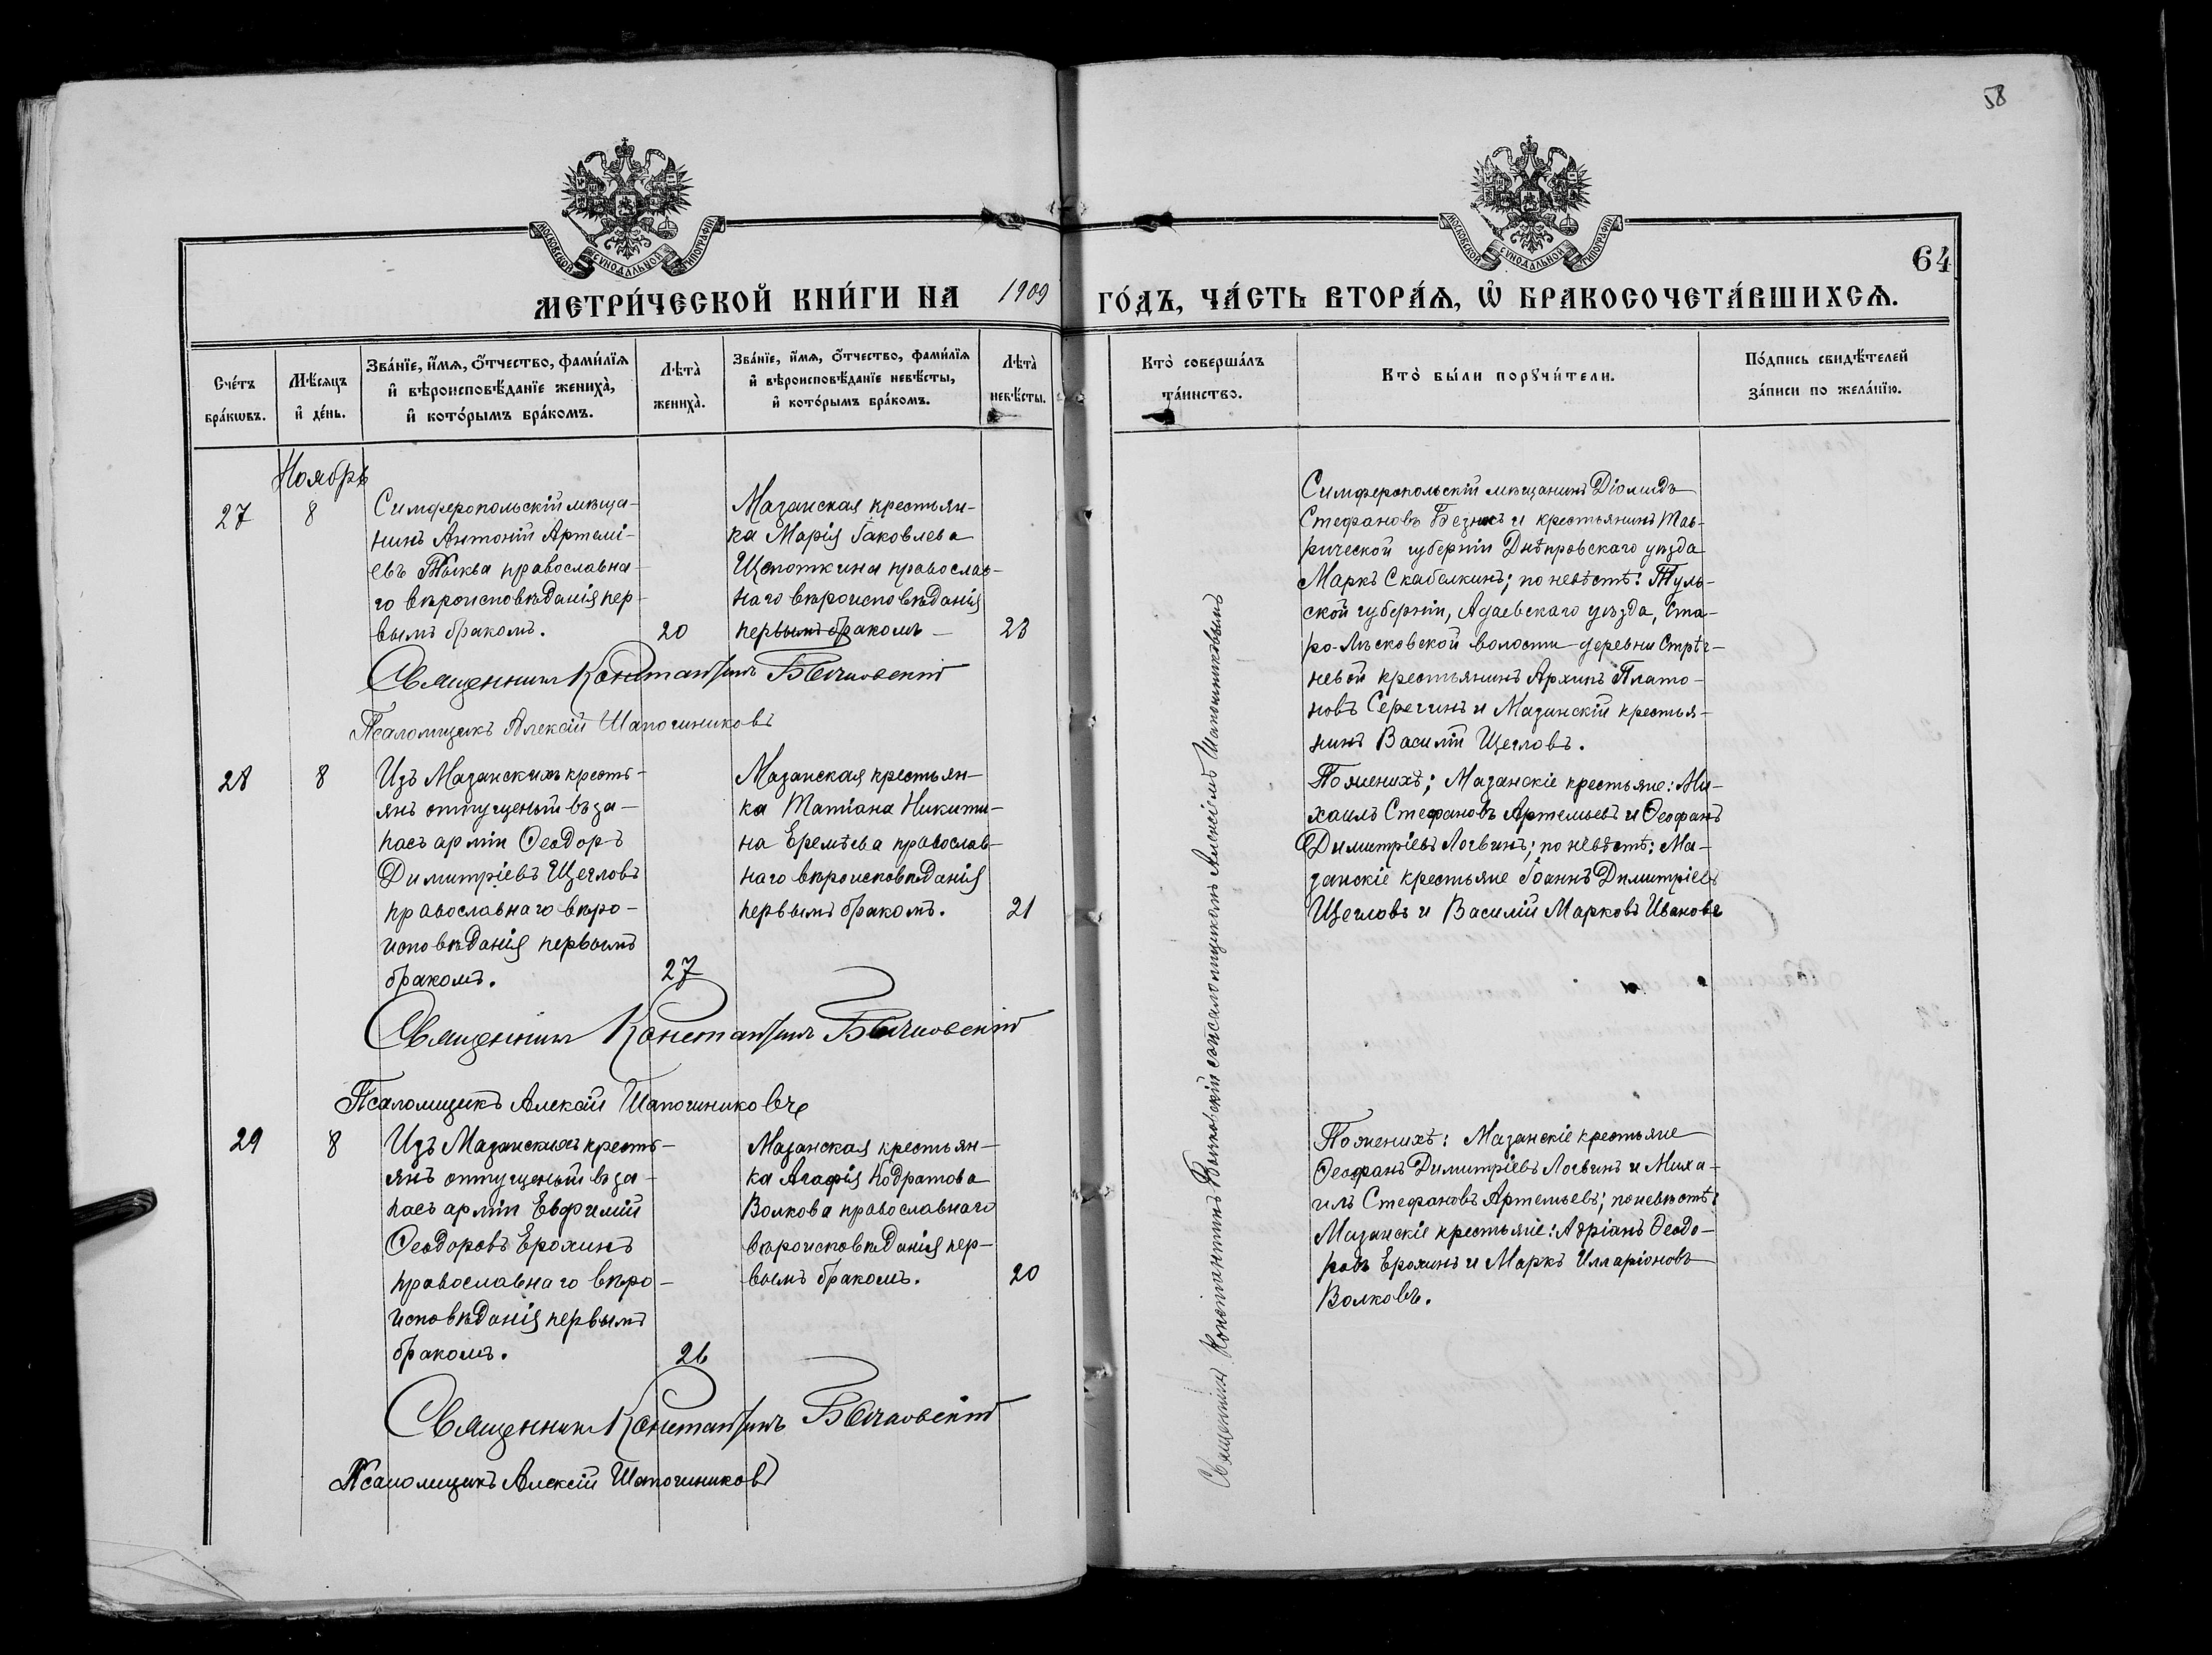 58
МОСКОВСКОЙ СѴНОДАЛЬНОЙ ТИПОГРАФІИ
МОСКОВСКОЙ СѴНОДАЛЬНОЙ ТИПОГРАФІИ
64
МЕТРИ́ЧЕСКОЙ КНИ́ГИ НА 1909 ГО́ДЪ, ЧА́СТЬ ВТОРА́Ѧ, Ѡ҆ БРАКОСОЧЕТА́ВШИХСѦ.
Сче́тъ бра́кѡвъ.
Мѣ́сяцъ и҆ де́нь.
Зва́нїе, и҆́мѧ, ѻ҆́тчество, фами́лїѧ
и҆ вѣроисповѣ́данїе жениха̀,
и҆ кото́рымъ бра́комъ.
Лѣта̀ жениха̀.
Зва́нїе, и҆́мѧ, ѻ҆́тчество, фами́лїѧ
и҆ вѣроисповѣ́данїе невѣ́сты,
и҆ кото́рымъ бра́комъ.
Лѣта̀ невѣ́сты.
Кто̀ соверша́лъ
та́инство.
Кто̀ бы́ли порꙋчи́тели.
По́дпись свидѣ́телей
за́писи по жела́нїю.
Ноябрь
27
8
Симферопольскій мѣща-
нинъ Антоній Артемі-
евъ Тыква православна-
го вѣроисповѣданія пер-
вымъ бракомъ.
20
Мазанская крестьян-
ка Марія Іаковлева
Щепоткина православ-
наго вѣроисповѣданія
первымъ бракомъ
23
Симферопольскій мѣщанинъ Діомидъ
Стефановъ и крестьянинъ Тав-
рической губерніи Днѣпровскаго уѣзда
Маркъ Скабелкинъ; по невѣстѣ: Туль-
ской губерніи, Адаевскаго уѣзда, Ста-
ро-Лѣсковской волости деревни
невой крестьянинъ Архипъ Плато-
новъ Серегинъ и Мазанскій крестья-
нинъ Василій Щегловъ.
Священникъ Константинъ Бычковскій
Псаломщикъ Алексій Шапошниковъ
28
8
Изъ Мазанскихъ кресть-
янъ отпущеный въ за-
пасъ арміи Ѳеодоръ
Димитріевъ Щегловъ
православнаго вѣро-
исповѣданія первымъ
бракомъ.
27
Мазанская крестьян-
ка Татіана Никити-
на Еремѣева православ-
наго вѣроисповѣданія
первымъ бракомъ.
21
По женихѣ; Мазанскіе крестьяне: Ми-
хаилъ Стефановъ Артемьевъ и Ѳеофанъ
Димитріевъ Логвинъ; по невѣстѣ: Ма-
занскіе крестьяне Іоаннъ Димитріевъ
Щегловъ и Василій Марковъ Ивановъ
Священникъ Константинъ Бычковскій
Псаломщикъ Алексій Шапошниковъ
29
8
Изъ Мазанскихъ кресть-
янъ отпущеный въ за-
пасъ арміи Евфимій
Ѳеодоровъ Ерохинъ
православнаго вѣро-
исповѣданія первымъ
бракомъ.
26
Мазанская крестьян-
ка Агафія Кодратова
Волкова православнаго
вѣроисповѣданія пер-
вымъ бракомъ.
20
По женихѣ: Мазанскіе крестьяне
Ѳеофанъ Димитріевъ Логвинъ и Миха-
илъ Стефановъ Артемьевъ; по невѣстѣ:
Мазанскіе крестьяне: Адріанъ Ѳеодо-
ровъ Ерохинъ и Маркъ Илларіоновъ
Волковъ.
Священникъ Константинъ Бычковскій
Псаломщикъ Алексій Шапошниковъ
Священникъ Константинъ Бычковскій съ псаломщикомъ Алексіемъ Шапошниковымъ